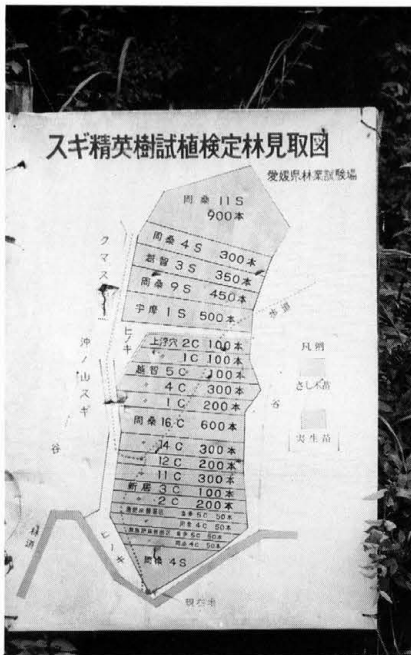 スギ精英樹試植検定林見取図
愛媛県林業試験場
周桑 11 S
900本
周桑 4 S 300本
越智 3 S 350本
周桑 9 S 450本
宇摩 1 S 500本
上浮穴 2C 100本
〃 1 C 100本
越智 5 C 100本
〃 4 C 300本
〃 1 C 200本
周桑 16 C 600本
〃 14 C 300本
〃 12 C 200本
〃 11 C 300本
新居 3 C 100本
〃 2 C 200本
5C 50本
4C 50本
5C 50本
4C 50本
周桑 4S
クマスギ
ヒノキ
沖ノ山スギ
谷
ヒノキ
歩道
谷
凡例
さし木苗
実生苗
現在地